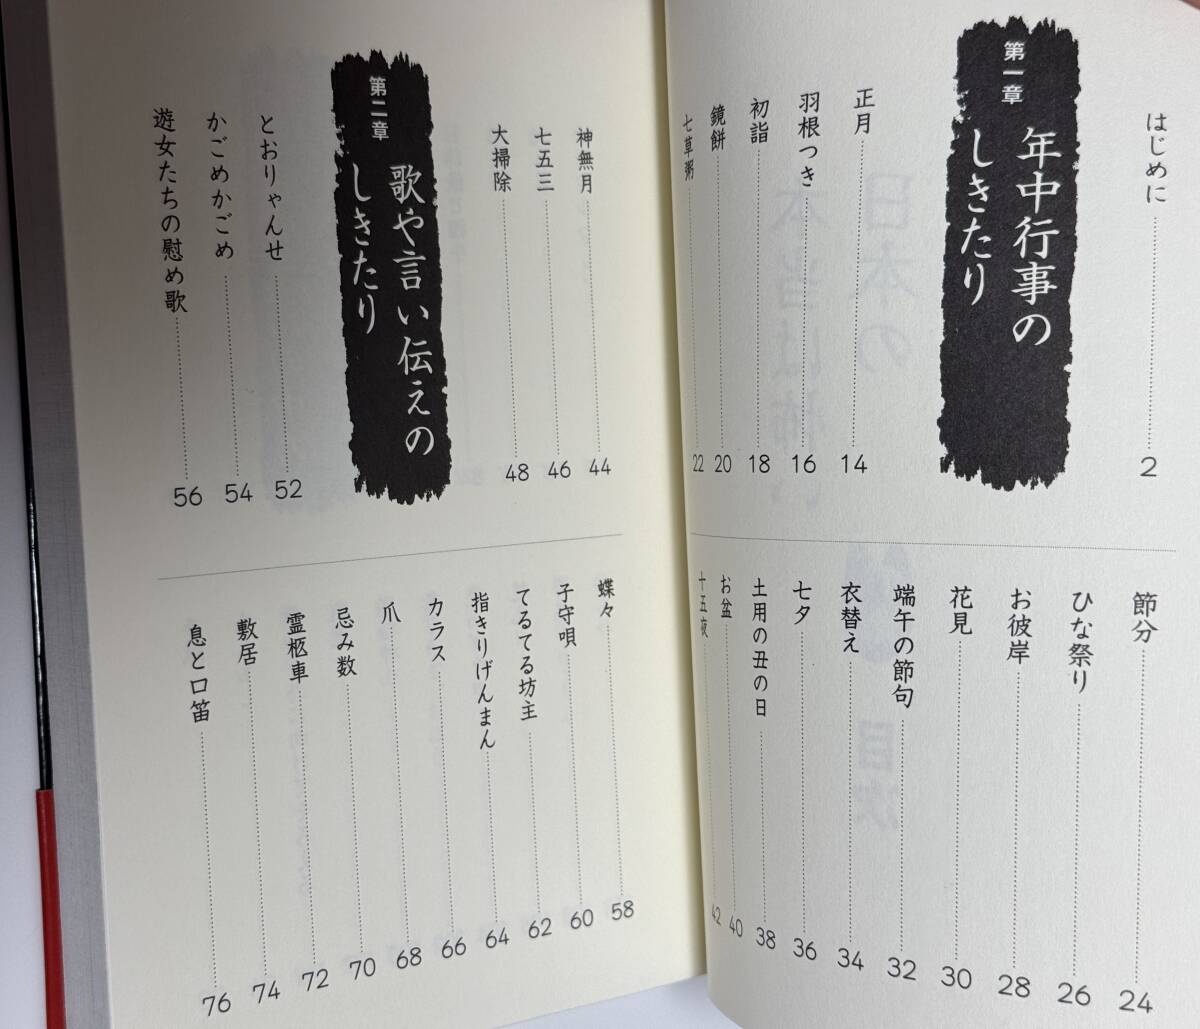 はじめに 2
第一章 年中行事の
しきたり
正月 14
羽根つき 16
初詣 18
鏡餅 20
七草粥 22
節分 24
ひな祭り 26
お彼岸 28
花見 30
端午の節句 32
衣替え 34
七夕 36
土用の丑の日 38
お盆 40
十五夜 42
神無月 44
七五三 46
大掃除 48
第二章 歌や言い伝えの
しきたり
とおりゃんせ 52
かごめかごめ 54
遊女たちの慰め歌 56
蝶々 58
子守唄 60
てるてる坊主 62
指きりげんまん 64
カラス 66
爪 68
忌み数 70
霊柩車 72
敷居 74
息と口笛 76